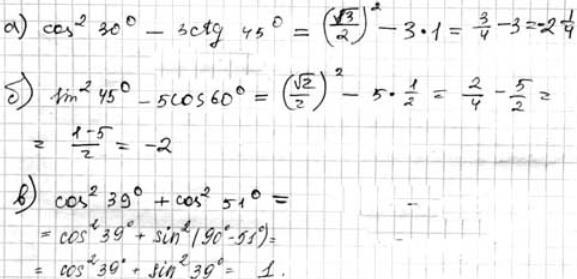 а) cos² 30° − 3ctg 45° = (√3/2)² − 3·1 = 3/4 − 3 = −2 1/4
б) sin² 45° − 5cos60° = (√2/2)² − 5·1/2 = 2/4 − 5/2 =
= (1−5)/2 = −2
в) cos² 39° + cos² 51° =
= cos² 39° + sin² (90°−51°) =
= cos² 39° + sin² 39° = 1.